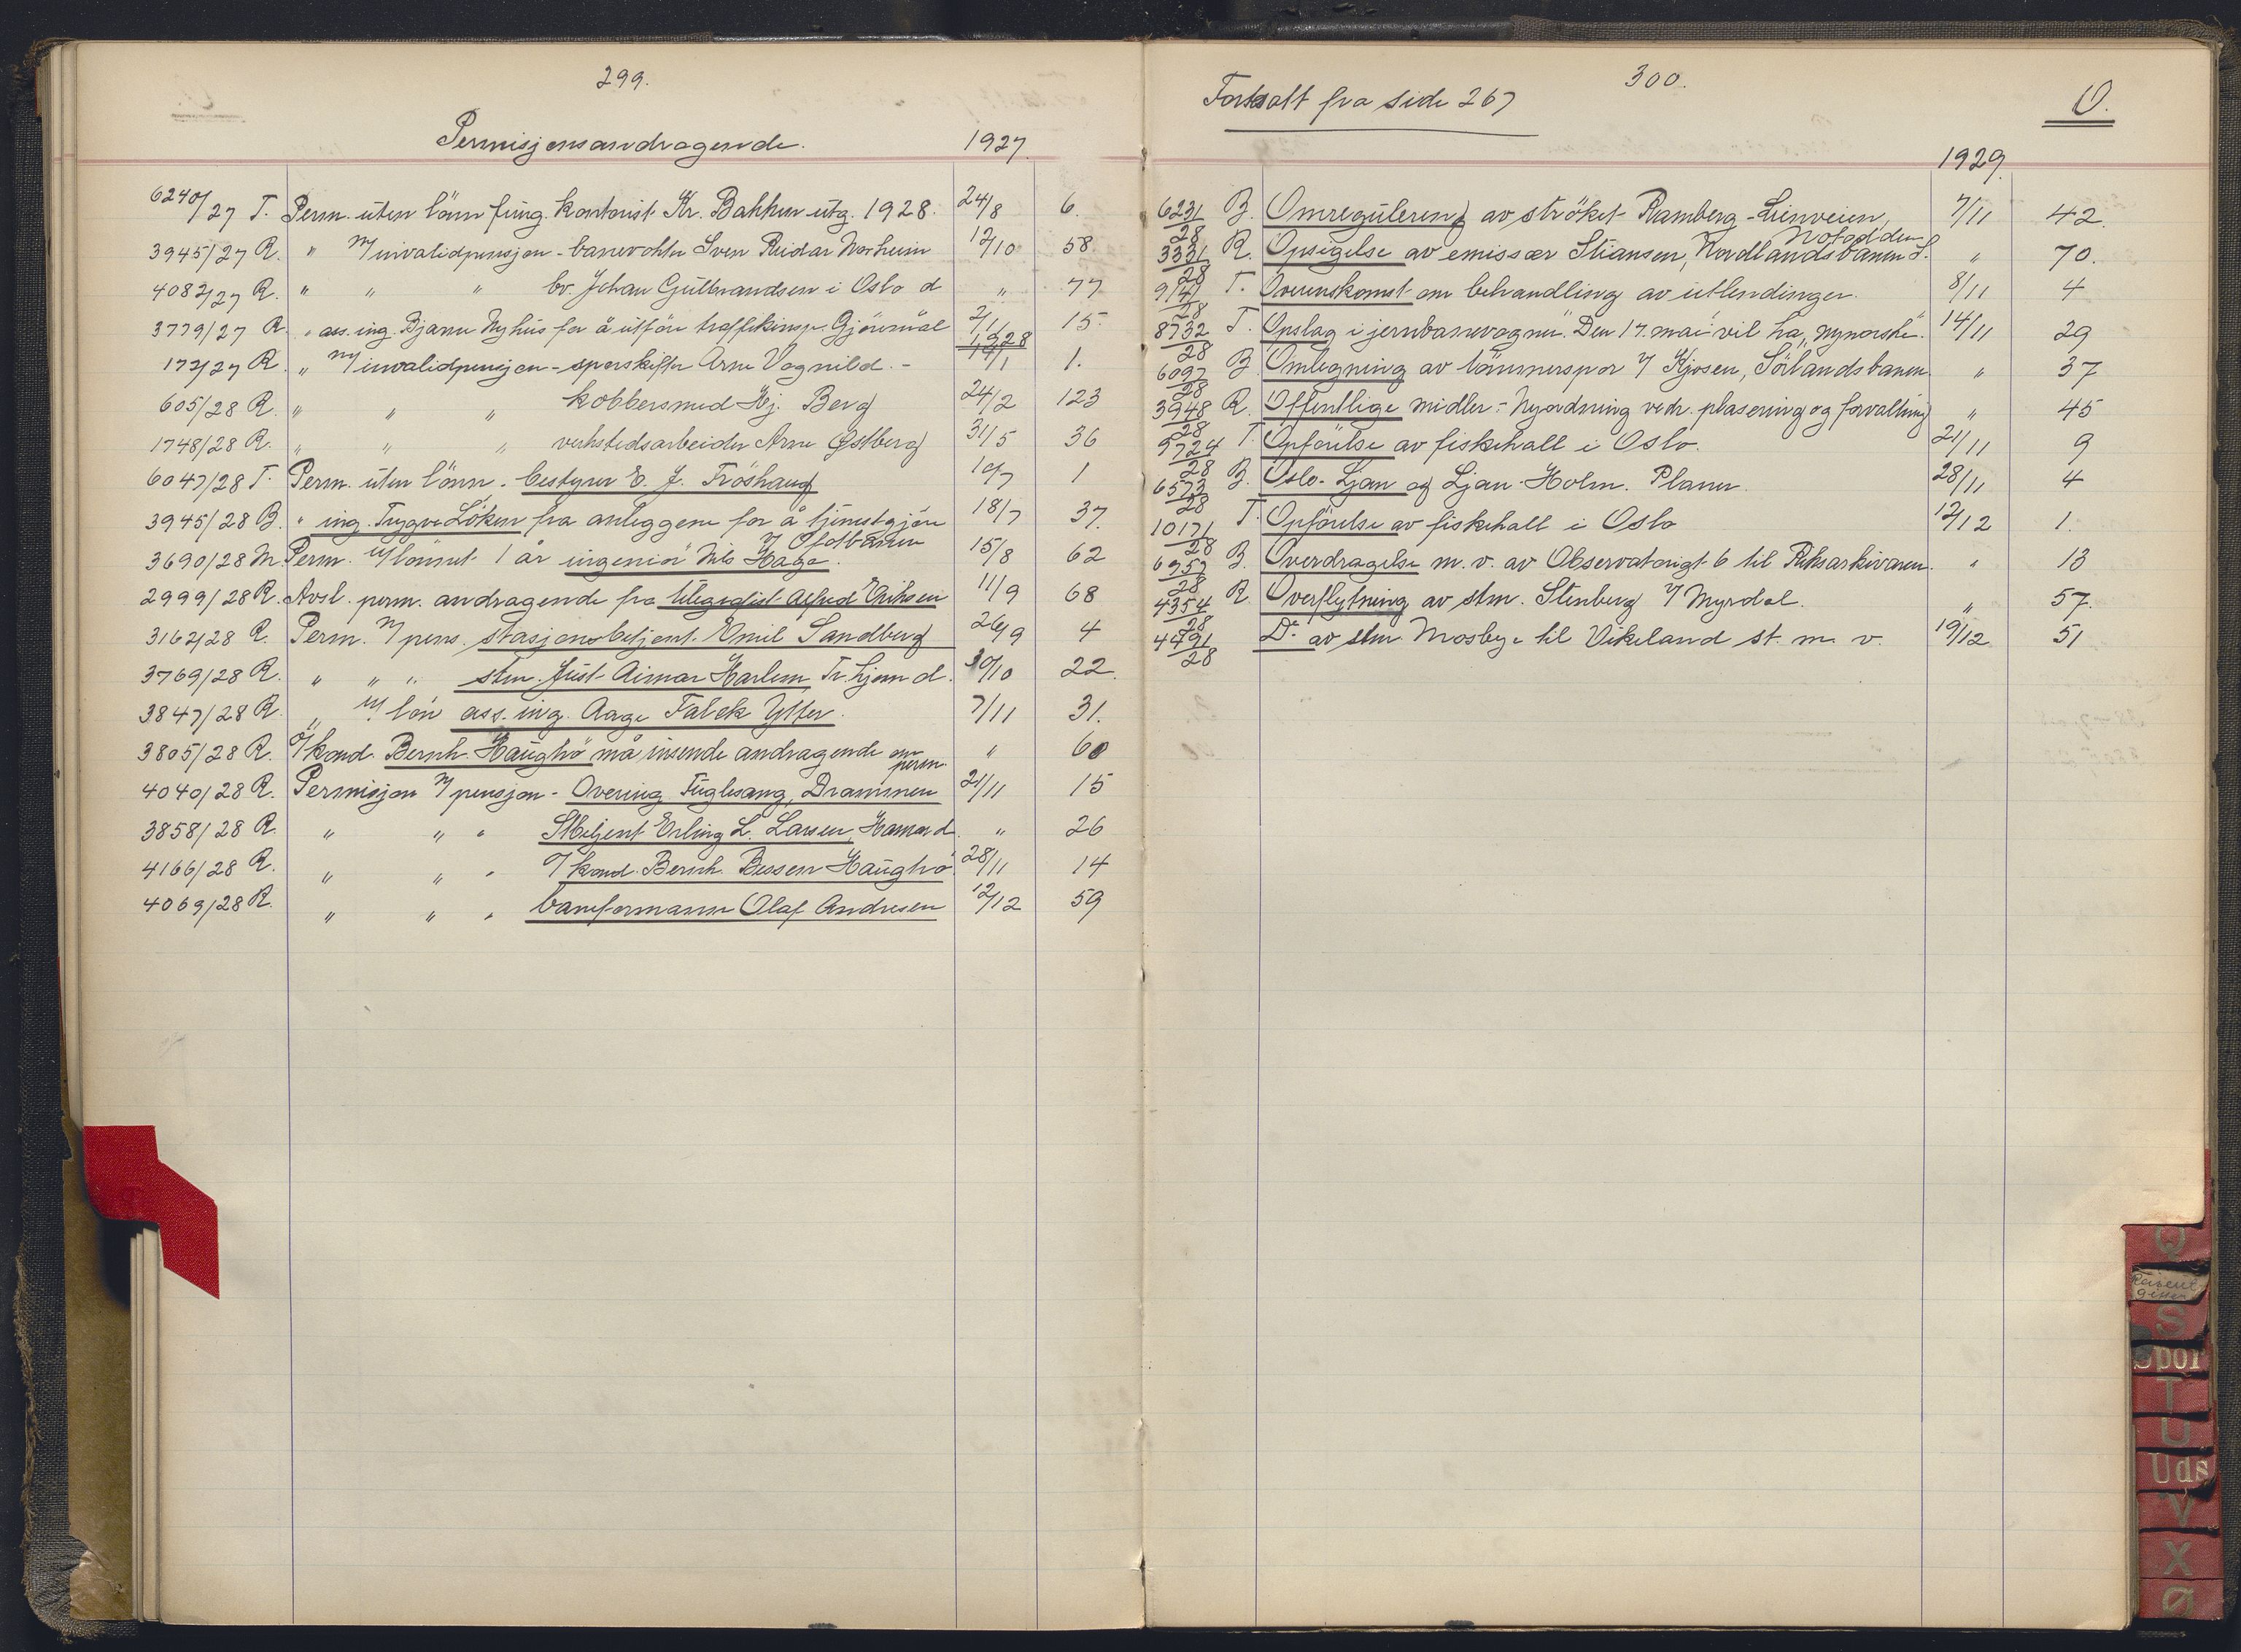 299.
Permisjonsandragende. 1927.
6240/27 T. Perm. uten lönn fung. kontorist Kr. Bakken utg. 1928. 24/8 6.
3945/27 R. " m/ invalidpensjon - banevokter Sven Reidar Norheim 12/10 58.
4082/27 R. " " " bv. Johan Gulbrandsen i Oslo d " 77
3779/27 R. " ass. ing. Bjarne Nyhus for å utföre trafikinsp. Gjöremål 2/1 15.
1928
172/27 R. " m/ invalidpensjon - sporskifter Arne Vognild. - /1 1.
605/28 R. " " " kobbersmed Hj. Berg 24/2 123
1748/28 R. " " " verkstedsarbeider Arne Østberg 31/5 36
6047/28 T. Perm. uten lönn - bestyrer E. J. Fröshaug 10/7 1
3945/28 B. " ing. Trygve Löken fra anleggene for å tjenestgjöre 18/7 37.
v/ Ofotbanen
3690/28 M. Perm. u/ lönnet 1 år ingeniör Nils Haga. 15/8 62
2999/28 R. Avsl. perm. andragende fra telegrafist Alfred Eriksen 11/9 68
3162/28 R. Perm. m/ pens. stasjonsbetjent Emil Sandberg 26/9 4
3769/28 R. " " " stm. Just Aimar Harlem Tr.hjem d. 30/10 22.
3847/28 R. " u/ lön ass. ing. Aage Falck Ytter. 7/11 31.
3805/28 R. o/ kond. Bernh. Haugbrö må insende andragende om " 60
perm.
4040/28 R. Permisjon m/ pensjon - Overing Fuglesang, Drammen 21/11 15
3858/28 R. " " " Stbetjent Erling L. Larsen, Hamar d. " 26
4166/28 R. " " " o/ kond. Bernh. Bessen Haugbrö 28/11 14
4069/28 R. " " " baneformann Olaf Andresen 12/12 59
300.
Fortsatt fra side 267
O.
1929.
6231/28 B. Omregulering av ströket Ramberg - Lienveien, 7/11 42.
Notodden
3331/28 R. Opsigelse av emissær Stiansen, Nordlandsbanen S. " 70.
9141/28 T. Overenskomst om behandling av utlendinger. 8/11 4
8732/28 T. Opslag i jernbanevogner. "Den 17. mai" vil ha "nynorsk". 14/11 29
6097/28 B. Omlegning av tömmerspor v/ Kjosen, Sörlandsbanen " 37
3948/28 R. Offentlige midler - Nyordning vedr. plasering og forvaltning " 45
9724/28 T. Opförelse av fiskehall i Oslo. 21/11 9
6572/28 B. Oslo - Ljan og Ljan - Holm. Planer. 28/11 4
10171/28 T. Opförelse av fiskehall i Oslo 12/12 1.
6959/28 B. Overdragelse m. v. av Observatorigt 6 til Riksarkivaren. " 13
4354/28 R. Overflytning av stm. Stenberg v/ Myrdal. " 57.
4491/28 Do av stm. Mosbye til Vikeland st. m. v. 19/12 51
Q
S
Spor
T
U
Uds
V
X
Ø